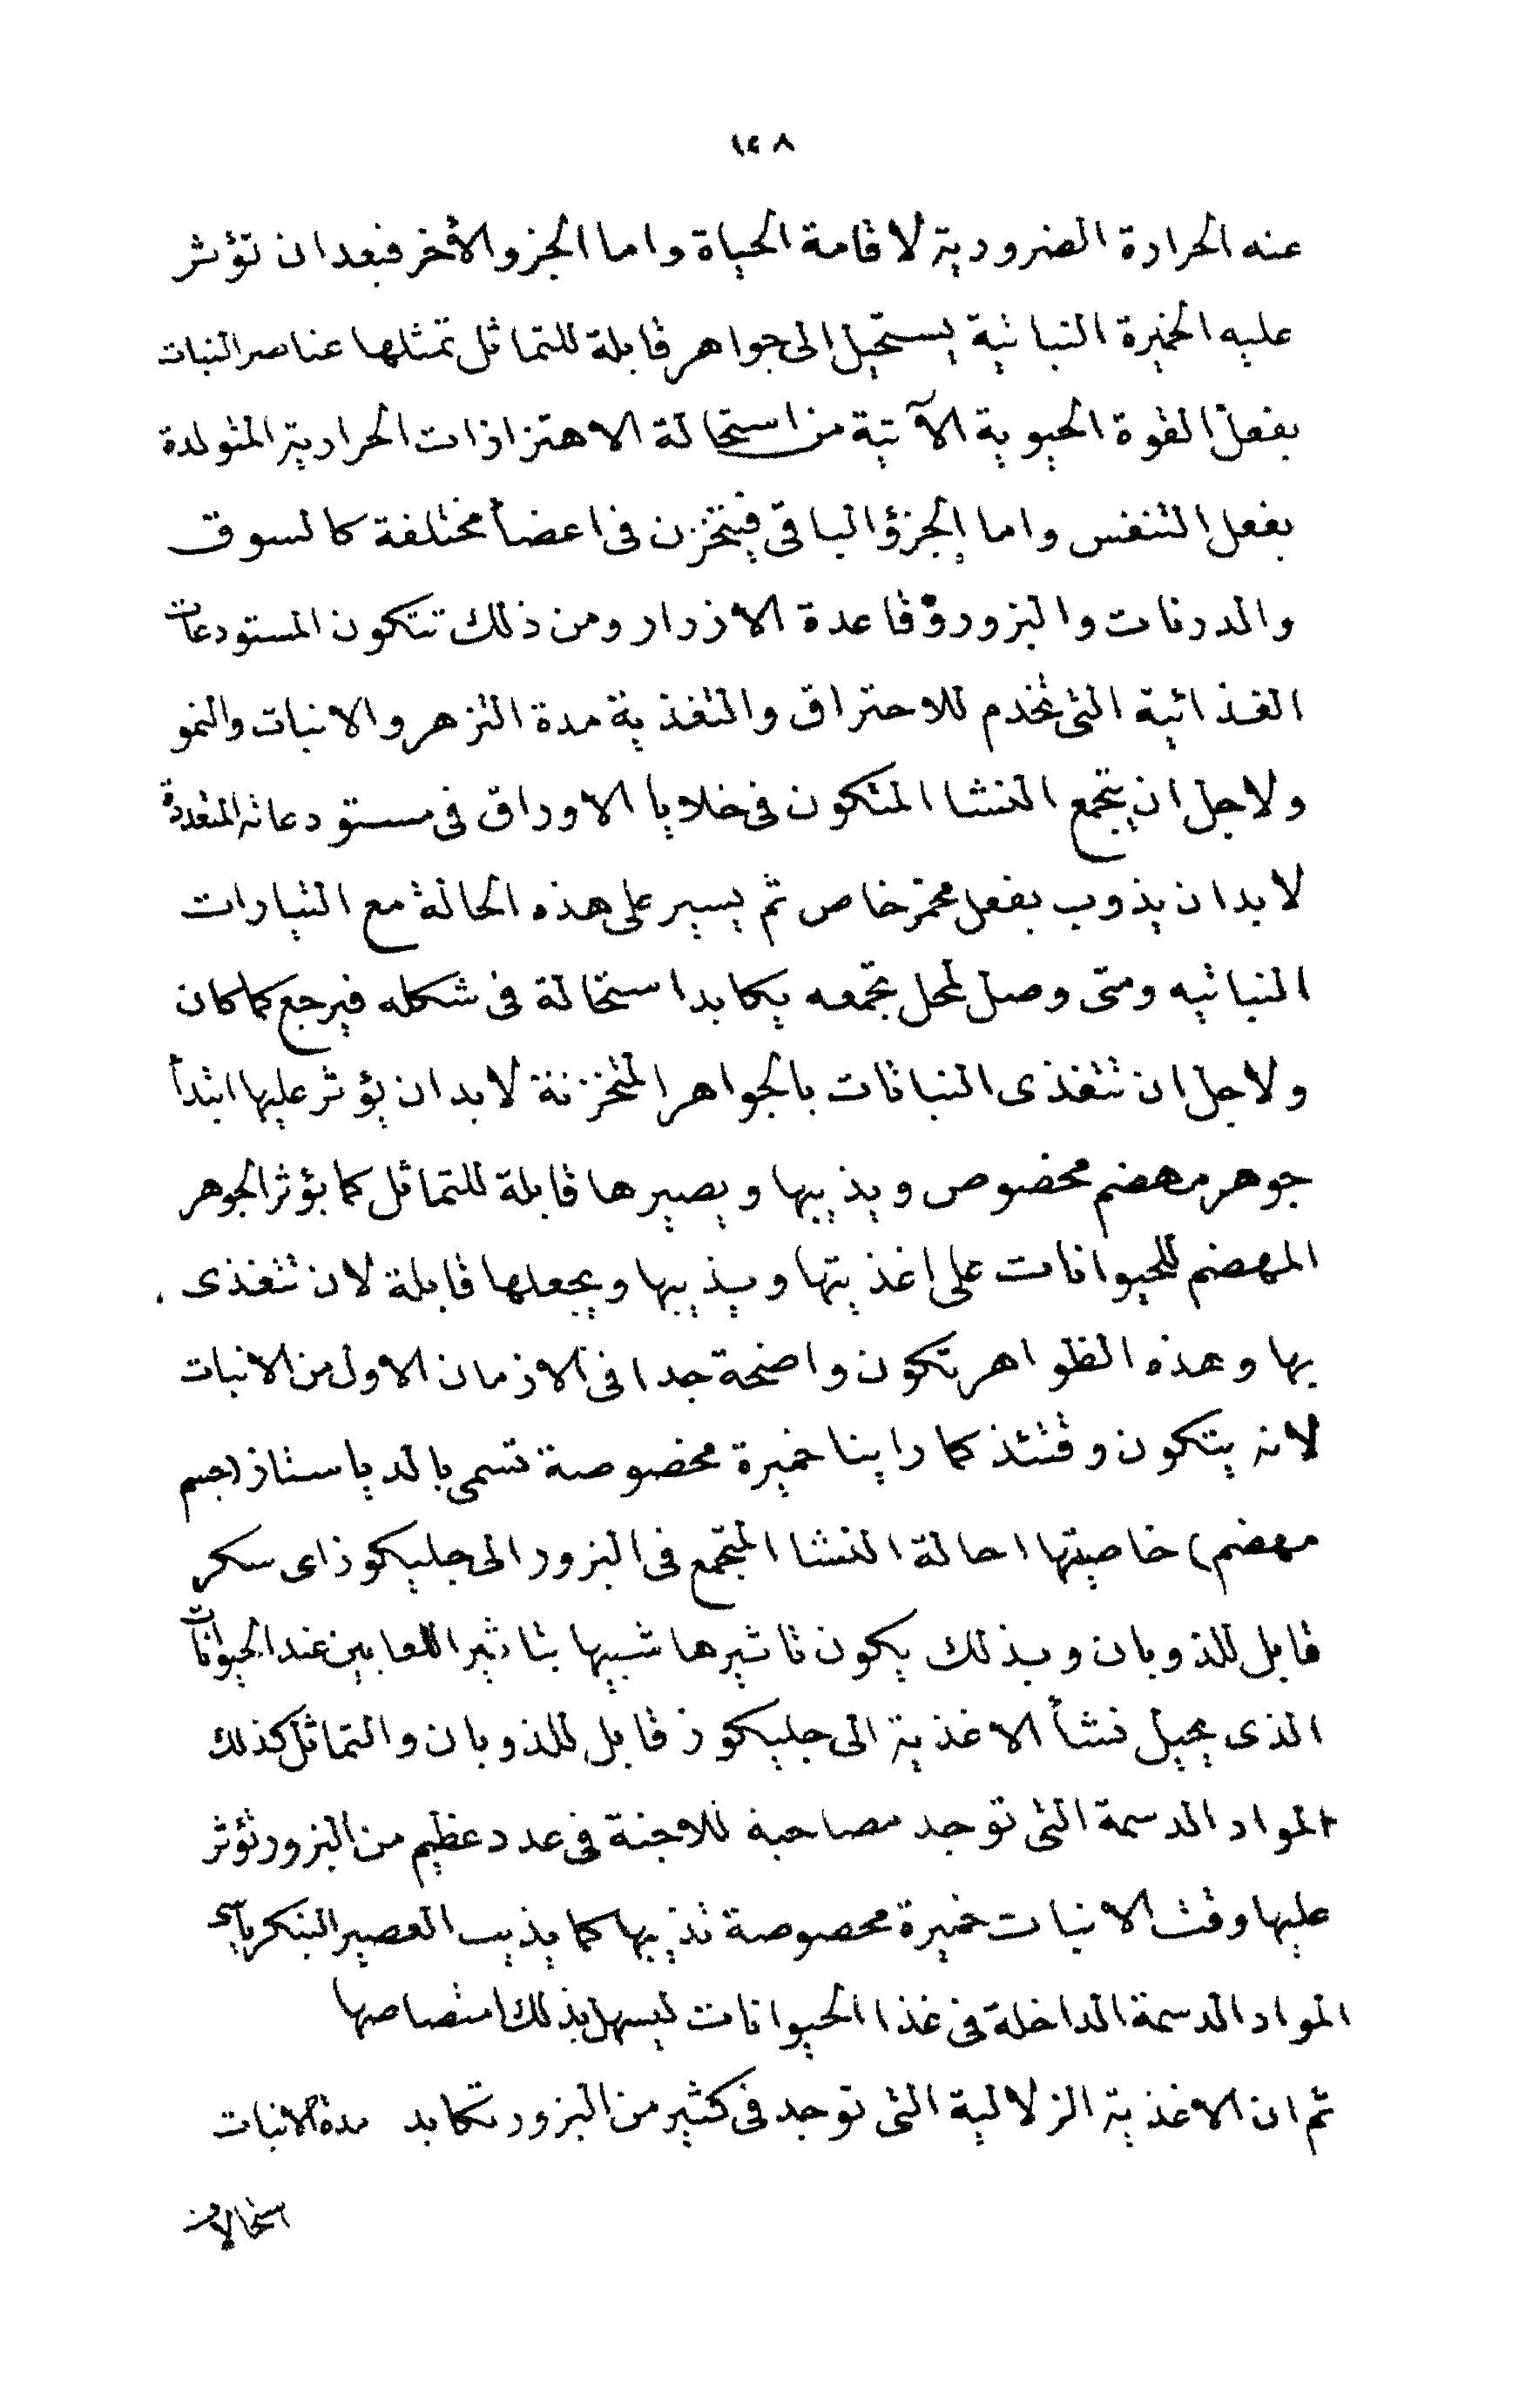 ١٤٨
عنه الحرارة الضرورية لاقامة الحياة واما الجزو الأخر فبعد ان تؤثر
عليه الخميرة النباتية يستحيل الى جواهر قابلة للتماثل تمثلها عناصر النبات
بفعل القوة الحيوية الآتية من استحالة الاهتزازات الحرارية المتولدة
بفعل التنفس واما الجزؤ الباقى فيتخزن فى اعضأ مختلفة كالسوق
والدرنات والبزور وقاعدة الازرار ومن ذلك تتكون المستودعات
الغذائية التى تخدم للاحتراق والتغذية مدة التزهر والانبات والنمو
ولاجل ان يتجمع النشا المتكون فى خلايا الاوراق فى مستودعاته المتعددة
لابد ان يذوب بفعل مخمر خاص ثم يسير على هذه الحالة مع التيارات
النباتيه ومتى وصل لمحل تجمعه يكابد استحالة فى شكله فيرجع كما كان
ولاجل ان تتغذى النباتات بالجواهر المتخزنة لابد ان يؤثر عليها ابتدأ
جوهر مهضم مخصوص ويذيبها ويصيرها قابلة للتماثل كما يؤثر الجوهر
المهضم للحيوانات على اغذيتها ويذيبها ويجعلها قابلة لان تتغذى
بها وهذه الظواهر تكون واضحة جدا فى الازمان الاول من الانبات
لانه يتكون وقتئذ كما راينا خميرة مخصوصة تسمى بالدياستاز (جسم
مهضم) خاصيتها احالة النشا المتجمع فى البزور الى جليكوز اى سكر
قابل للذوبان وبذلك يكون تاثيرها شبيها بتاثير اللعابين عند الحيوانات
الذى يحيل نشأ الاغذية الى جليكوز قابل للذوبان والتماثل كذلك
المواد الدسمة التى توجد مصاحبة للاجنة فى عدد عظيم من البزور تؤثر
عليها وقت الانبات خميرة مخصوصة تذيبها كما يذيب العصير البنكرياسى
المواد الدسمة الداخلة فى غذا الحيوانات ليسهل بذلك امتصاصها
ثم ان الاغذية الزلالية التى توجد فى كثير من البزور تكابد مدة الانبات